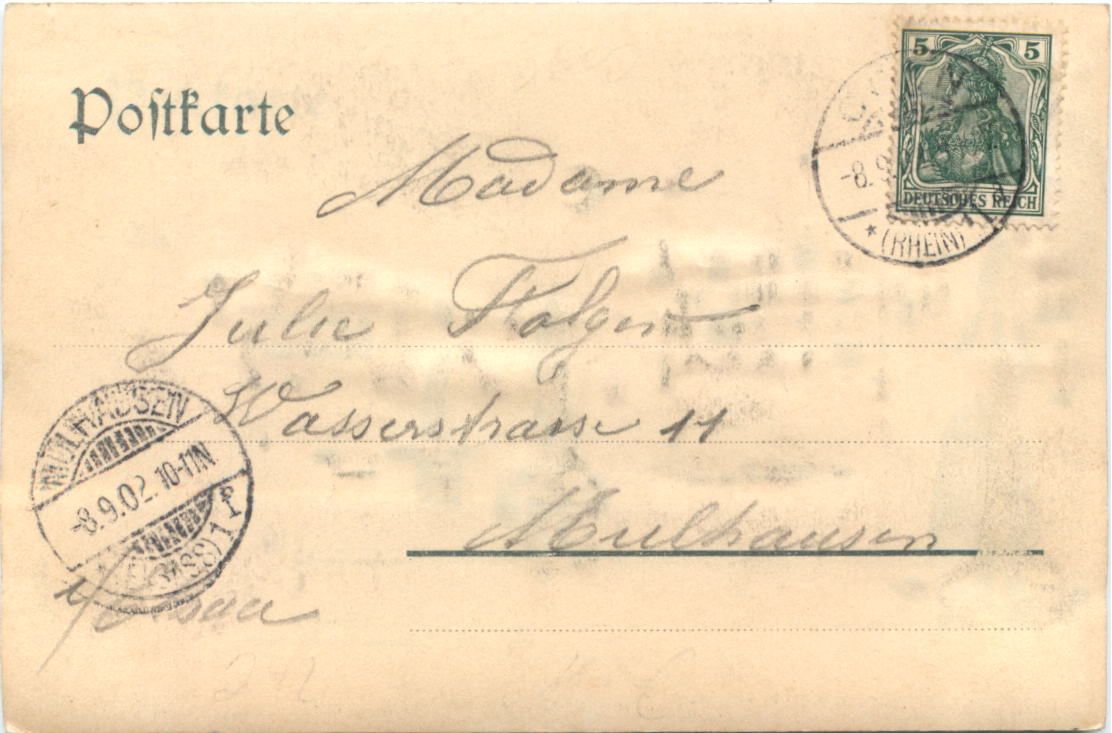 Postkarte
5 5
DEUTSCHES REICH
-8.9
* (RHEIN)
Madame
Julie
Wasserstrasse 11
Mulhausen
MÜLHAUSEN
-8.9.02. 10-11N
1